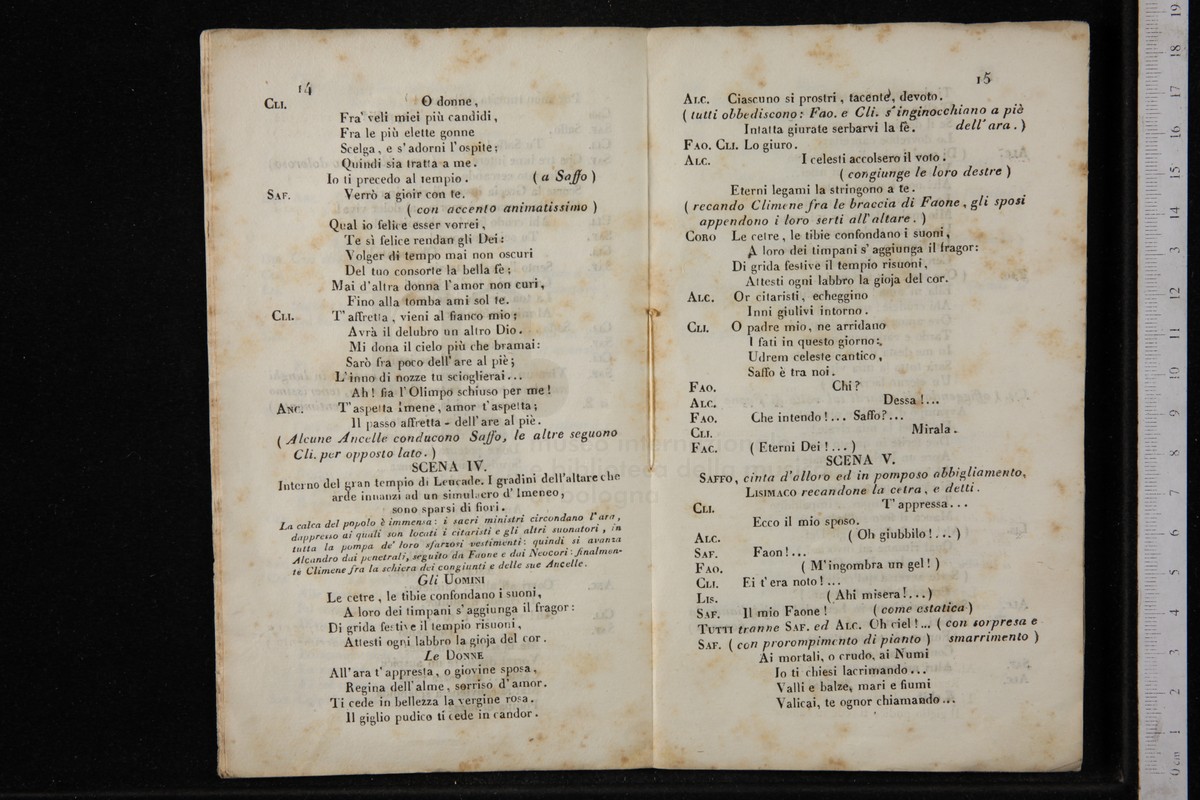 14
CLI. O donne,
Fra' veli miei più candidi,
Fra le più elette gonne
Scelga, e s'adorni l'ospite;
Quindi sia tratta a me.
Io ti precedo al tempio. (a Saffo)
SAF. Verrò a gioir con te.
(con accento animatissimo)
Qual io felice esser vorrei,
Te sì felice rendan gli Dei:
Volger di tempo mai non oscuri
Del tuo consorte la bella fè;
Mai d'altra donna l'amor non curi,
Fino alla tomba ami sol te.
CLI. T'affretta, vieni al fianco mio;
Avrà il delubro un altro Dio.
Mi dona il cielo più che bramai:
Sarò fra poco dell'are al piè;
L'inno di nozze tu scioglierai...
Ah! fia l'Olimpo schiuso per me!
ANC. T'aspetta Imene, amor t'aspetta;
Il passo affretta - dell'are al piè.
(Alcune Ancelle conducono Saffo, le altre seguono
Cli. per opposto lato.)
SCENA IV.
Interno del gran tempio di Leucade. I gradini dell'altare che
arde innanzi ad un simulacro d'Imeneo,
sono sparsi di fiori.
La calca del popolo è immensa: i sacri ministri circondano l'ara,
dappresso ai quali son locati i citaristi e gli altri suonatori, in
tutta la pompa de' loro sfarzosi vestimenti: quindi si avanza
Alcandro dai penetrali, seguito da Faone e dai Neocori: finalmen-
te Climene fra la schiera dei congiunti e delle sue Ancelle.
Gli UOMINI
Le cetre, le tibie confondano i suoni,
A loro dei timpani s'aggiunga il fragor:
Di grida festive il tempio risuoni,
Attesti ogni labbro la gioja del cor.
Le DONNE
All'ara t'appresta, o giovine sposa,
Regina dell'alme, sorriso d'amor.
Ti cede in bellezza la vergine rosa.
Il giglio pudico ti cede in candor.
15
ALC. Ciascuno si prostri, tacente, devoto.
(tutti obbediscono: Fao. e Cli. s'inginocchiano a piè
Intatta giurate serbarvi la fè. dell'ara.)
FAO. CLI. Lo giuro.
ALC. I celesti accolsero il voto.
(congiunge le loro destre)
Eterni legami la stringono a te.
(recando Climene fra le braccia di Faone, gli sposi
appendono i loro serti all'altare.)
CORO Le cetre, le tibie confondano i suoni,
A loro dei timpani s'aggiunga il fragor:
Di grida festive il tempio risuoni,
Attesti ogni labbro la gioja del cor.
ALC. Or citaristi, echeggino
Inni giulivi intorno.
CLI. O padre mio, ne arridano
I fati in questo giorno:
Udrem celeste cantico,
Saffo è tra noi.
FAO. Chi?
ALC. Dessa!...
FAO. Che intendo!... Saffo?...
CLI. Mirala.
FAC. (Eterni Dei!...)
SCENA V.
SAFFO, cinta d'alloro ed in pomposo abbigliamento,
LISIMACO recandone la cetra, e detti.
CLI. T'appressa...
Ecco il mio sposo.
ALC. (Oh giubbilo!...)
SAF. Faon!...
FAO. (M'ingombra un gel!)
CLI. Ei t'era noto!...
LIS. (Ahi misera!...)
SAF. Il mio Faone! (come estatica)
TUTTI tranne SAF. ed ALC. Oh ciel!... (con sorpresa e
SAF. (con prorompimento di pianto) smarrimento)
Ai mortali, o crudo, ai Numi
Io ti chiesi lacrimando...
Valli e balze, mari e fiumi
Valicai, te ognor chiamando...
museo internazionale
e biblioteca della musica
bologna
0 cm 1 2 3 4 5 6 7 8 9 10 11 12 13 14 15 16 17 18 19